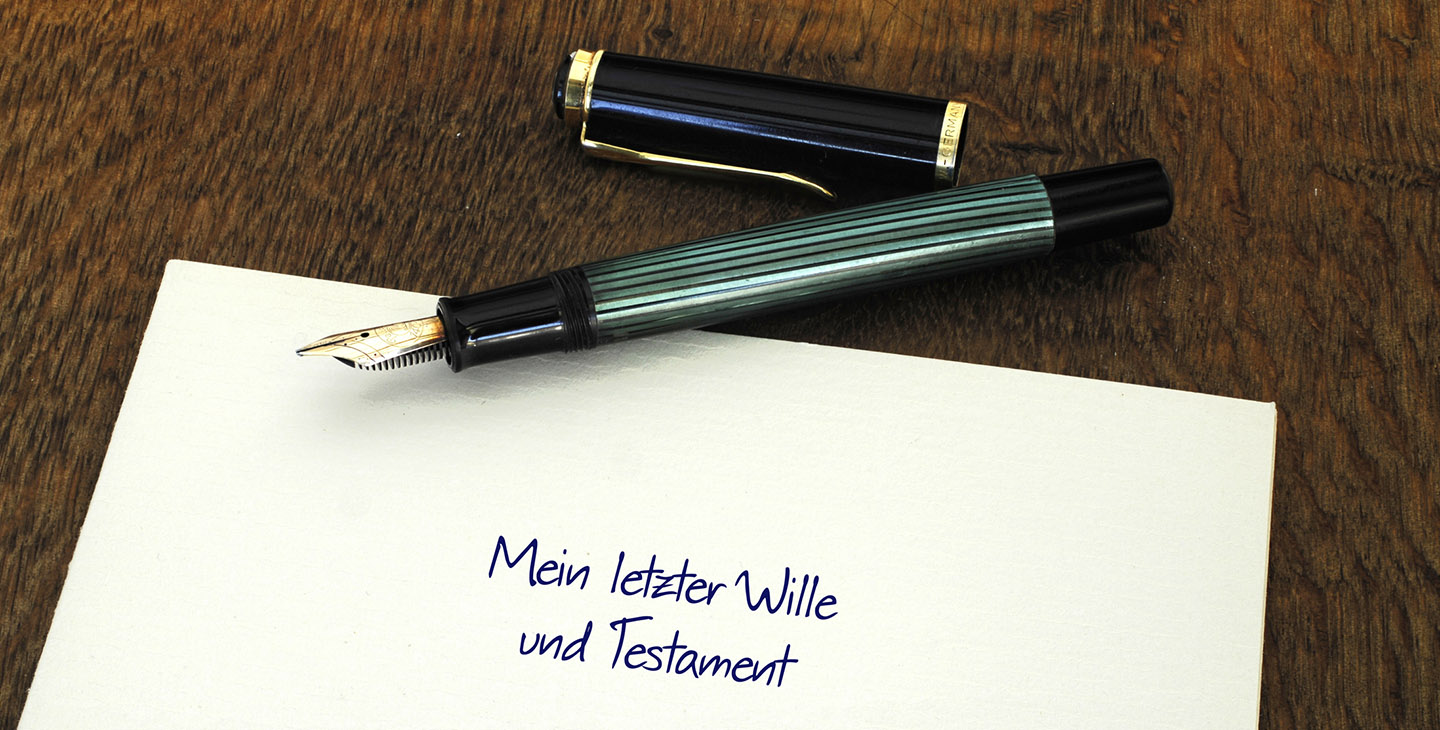 -GERMAN
Mein letzter Wille
und Testament